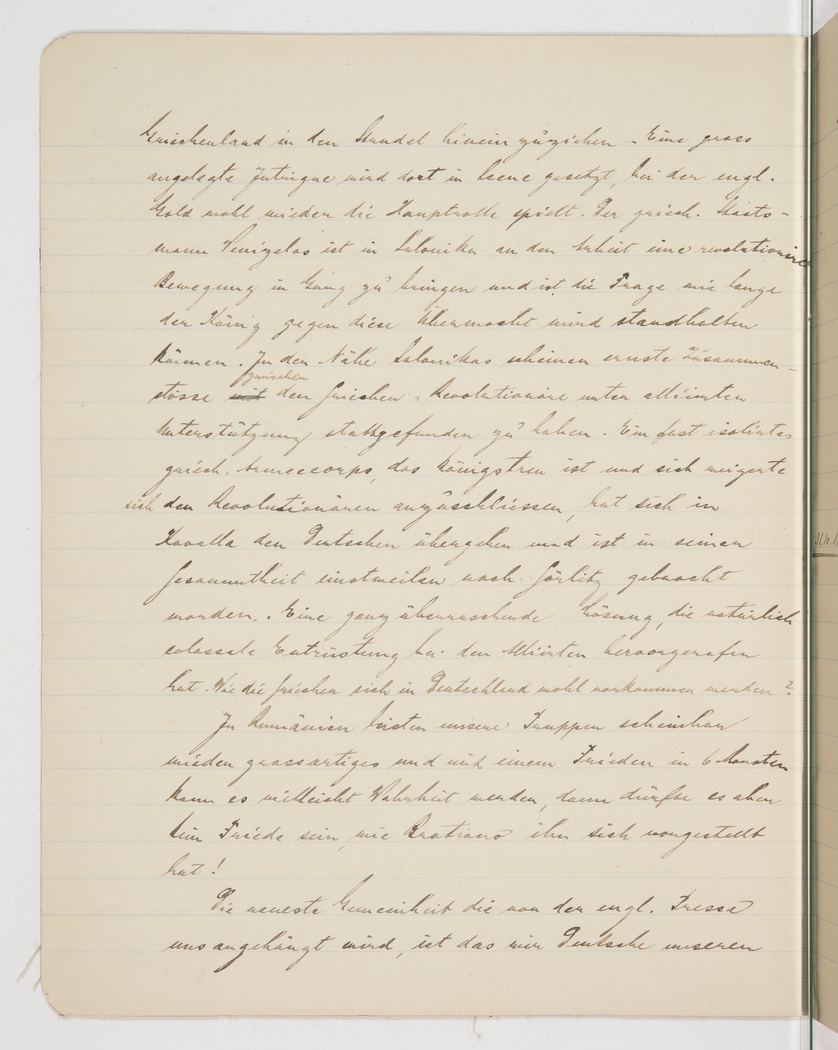 Griechenland in den Strudel hineinzuziehen. Eine gross
angelegte Intrigue wird dort in Scene gesetzt, bei der engl.
Gold wohl wieder die Hauptrolle spielt. Der griech. Staats-
mann Venizelos ist in Salonika an der Arbeit eine revolutionäre
Bewegung in Gang zu bringen und ist die Frage wie lange
der König gegen diese Übermacht wird standhalten
können. In der Nähe Salonikas scheinen ernste Zusammen-
stösse zwischen den Griechen & Revolutionäre unter alliirten
Unterstützung stattgefunden zu haben. Ein fast isolirtes
griech. Armeecorps, das königstreu ist und sich weigerte
sich den Revolutionären anzuschliessen, hat sich in
Kavalla den Deutschen übergeben und ist in seiner
Gesammtheit einstweilen nach Görlitz gebracht
worden. Eine ganz überraschende Lösung, die natürlich
colossale Entrüstung bei den Alliirten hervorgerufen
hat. Wie die Griechen sich in Deutschland wohl vorkommen werden?
In Rumänien leisten unsere Truppen scheinbar
wieder grossartiges und mit einem Frieden in 6 Monaten
kann es vielleicht Wahrheit werden, dann dürfte es aber
kein Friede sein, wie Bratiano ihn sich vorgestellt
hat!
Die neueste Gemeinheit die von der engl. Presse
uns angehängt wird, ist das wir Deutsche unseren